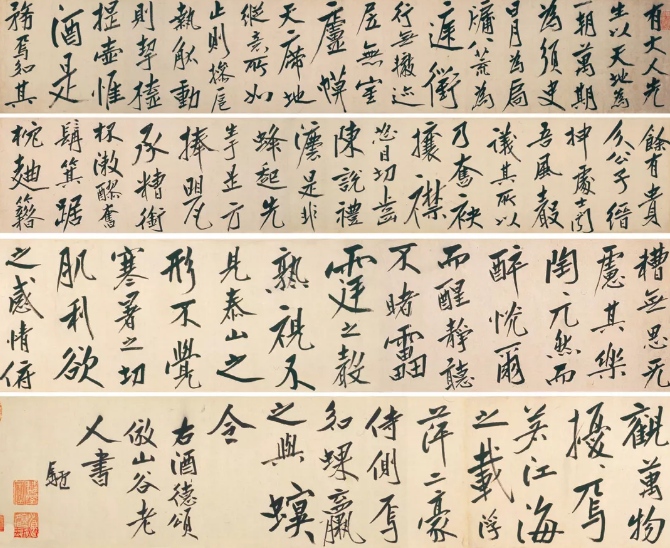 有大人先
生以天地為
一朝萬期
為須臾
日月為扃
牖八荒為
庭衢
行無轍迹
居無室
廬幙
天席地
縱意所如
止則操巵
執觚動
則挈榼
提壺惟
酒是
務焉知其
餘有貴
介公子縉
紳處士聞
吾風聲
議其所以
乃奮袂
攘襟
怒目切齒
陳說禮
灋是非
蜂起先
生是方
捧甖
承糟銜
杯漱醪奮
髯箕踞
枕麴籍
糟無思无
慮其樂
陶〻兀然而
醉恍爾
而醒靜聽
不睹雷
霆之聲
熟視不
見泰山之
形不覺
寒暑之切
肌利欲
之感情俯
觀萬物
擾〻焉
若江海
之載浮
萍二豪
侍側焉
如蜾蠃
之與螟
令
右酒德頌
倣山谷老
人書